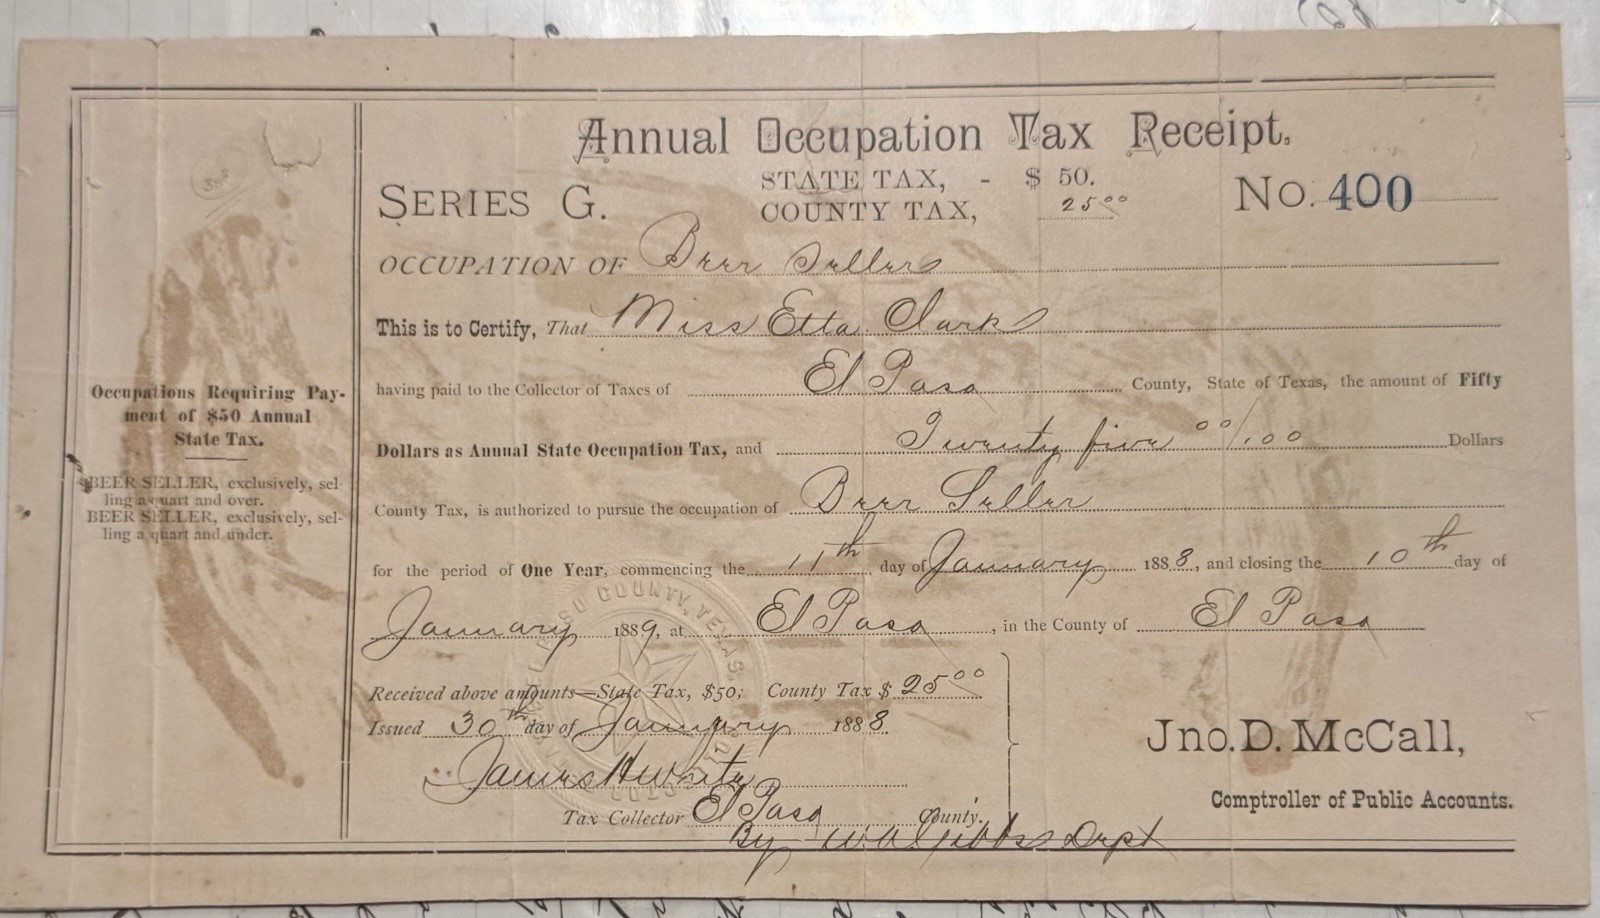 Annual Occupation Tax Receipt.
SERIES G.
STATE TAX, - $ 50.
COUNTY TAX, 25 00
No. 400
OCCUPATION OF Beer Sellers
This is to Certify, That Miss Etta Clark
having paid to the Collector of Taxes of El Paso County, State of Texas, the amount of Fifty
Dollars as Annual State Occupation Tax, and Twenty five 00/100 Dollars
County Tax, is authorized to pursue the occupation of Beer Seller
for the period of One Year, commencing the 11th day of January 1888, and closing the 10th day of
January 1889, at El Paso, in the County of El Paso
Received above amounts—State Tax, $50; County Tax $ 25 00
Issued 30th day of January 1888
James H White
Tax Collector El Paso County.
By W. A. Gibbs Dept
Jno. D. McCall,
Comptroller of Public Accounts.
Occupations Requiring Pay-
ment of $50 Annual
State Tax.
BEER SELLER, exclusively, sel-
ling a quart and over.
BEER SELLER, exclusively, sel-
ling a quart and under.
COUNTY, TEXAS.